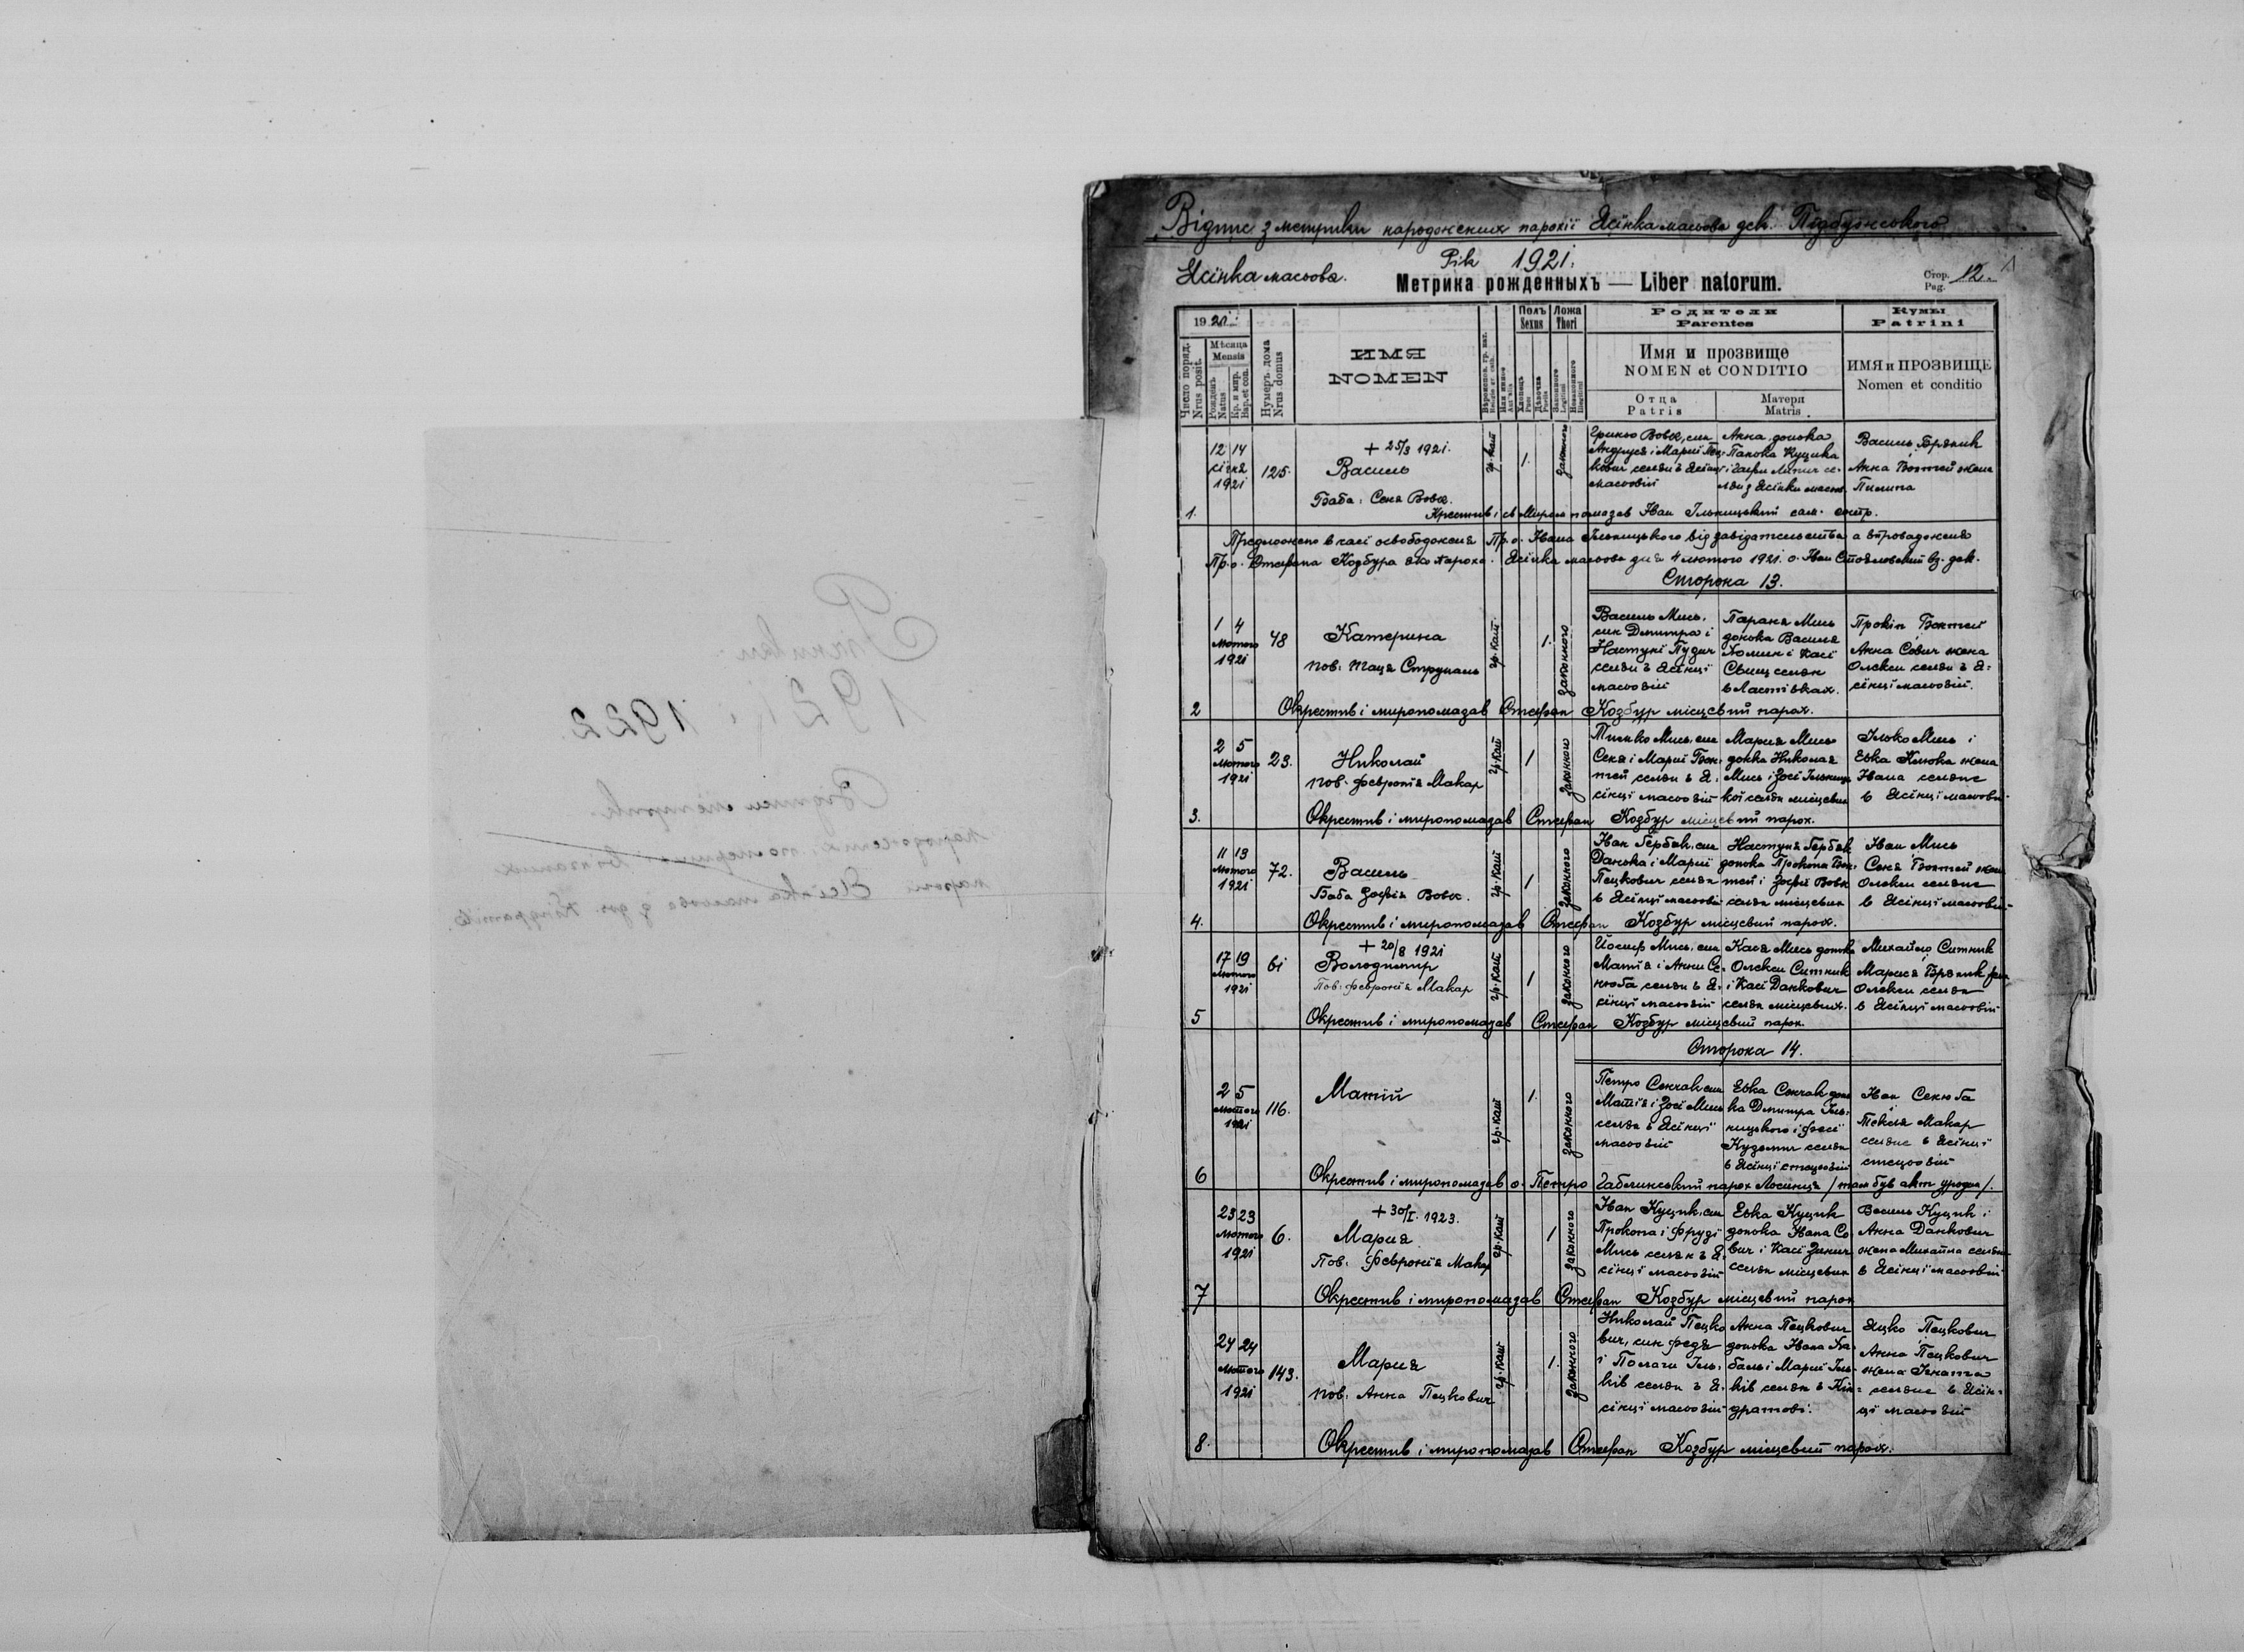 Відпис з метрики народжених парохії Ясінка масьова дек. Підбужського
Ясінка масьова.
Рік 1921.
Метрика рожденныхъ — Liber natorum.
Стор. Pag. 12.
19 21
Число поряд. Nrus posit.
Мѣсяца Mensis
Рожденъ Natus
Кр. и мир. Bap. et con.
Нумеръ дома Nrus domus
ИМЯ NOMEN
Полъ Sexus
Хлопець Puer
Дѣвочка Puella
Ложа Thori
Законного Legitimi
Незаконного Illegitimi
Родители Parentes
Имя и прозвище NOMEN et CONDITIO
Отца Patris
Матери Matris
Кумы Patrini
ИМЯ и ПРОЗВИЩЕ Nomen et conditio
1.
12 14 січня 1921
125.
+ 25/3 1921.
Василь
Баба: Сеня Вовк.
гр. кат
1.
законного
Гринько Вовк, син Андруся і Марії
масьовій
Анна, донька Панька Куцика
Василь Бряник
Анна Бохтей жена Пилипа
Крестив і св. Миром помазав Иван Ільницький сам. сотр.
Предложено в касі освободженя Пр. о. Ивана Ільницького від завідательства а впровадженя
Пр. о. Стефана Козбура яко пароха. Ясінка масьова дня 4 лютого 1921. о. Иван Стояловский вз. дек.
Сторона 13.
2
1 4 Лютого 1921
48
Катерина
пов: Наця Струпаль
гр. кат
1.
законного
Василь Мись, син Дмитра і Настуні Пудич селян в Ясінці масьовій
Параня Мись донька Василя Хомин і Касі Сьвищ селян в Ластівках.
Прокіп Бохтей
Анна Сович жена Олекси селян в Ясінці масьовій.
Окрестив і миропомазав Стефан Козбур місцевий парох.
3.
2 5 Лютого 1921
23.
Николай
пов. Февронія Макар
гр. кат
1
законного
Тимко Мись, син Сеня і Марії Бохтей селян в Ясінці масьовій
Мария Мись донька Николая Мись і Зосі Ільницької селян місцевих
Ілько Мись і Евка Клюка жена Ивана селяне в Ясінці масьовій
Окрестив і миропомазав Стефан Козбур місцевий парох.
4.
11 13 Лютого 1921
72.
Василь
Баба Зофія Вовк.
гр. кат
1
законного
Иван Гербак, син Данька і Марії Пецкович селян в Ясінці масьовій
Настуня Гербак донька Прокопа Бохтей і Зофії Вовк селян місцевих
Иван Мись
Сеня Бохтей жена Олекси селяне в Ясінці масьовій
Окрестив і миропомазав Стефан Козбур місцевий парох.
5
17 19 Лютого 1921
61
+ 20/8 1921
Володимир
Пов. Февронія Макар
гр. кат
1
законного
Йосиф Мись, син Матія і Анни Секюба селян в Ясінці масьовій
Кася Мись донька Олекси Ситник і Касі Данкович селян місцевих.
Михайло Ситник
Марися Бряник жена Олекси селян в Ясінці масьовій
Окрестив і миропомазав Стефан Козбур місцевий парох.
Сторона 14.
6
2 5 Лютого 1921
116.
Матій
гр. кат
1.
законного
Петро Сенчак син Матія і Зосі Мись селян в Ясінці масьовій
Евка Сенчак донька Дмитра Ільницького і Фесі Куземич селян в Ясінці стецьовій
Иван Секюба
і Текля Макар селяне в Ясінці стецьовій
Окрестив і миропомазав о. Петро Габлинський парох Лосинця /там був акт уродин/.
7
23 23 Лютого 1921
6.
+ 30/I. 1923.
Мария
Пов. Февронія Макар
гр. кат
1
законного
Иван Куцик, син Прокопа і Фрузі Мись селян в Ясінці масьовій
Евка Куцик донька Ивана Сович і Касі Занич селян місцевих
Василь Куцик і Анна Данкович жена Михайла селян в Ясінці масьовій
Окрестив і миропомазав Стефан Козбур місцевий парох
8.
24 24 Лютого 1921
143.
Мария
пов. Анна Пецкович
гр. кат
1.
законного
Николай Пецкович, син Федя і Полагі Ільків селян в Ясінці масьовій
Анна Пецкович донька Ивана Кабаль і Марії Ільків селян в Кіндратові.
Яцко Пецкович
Анна Пецкович жена Ігната селяне в Ясінці масьовій
Окрестив і миропомазав Стефан Козбур місцевий парох.